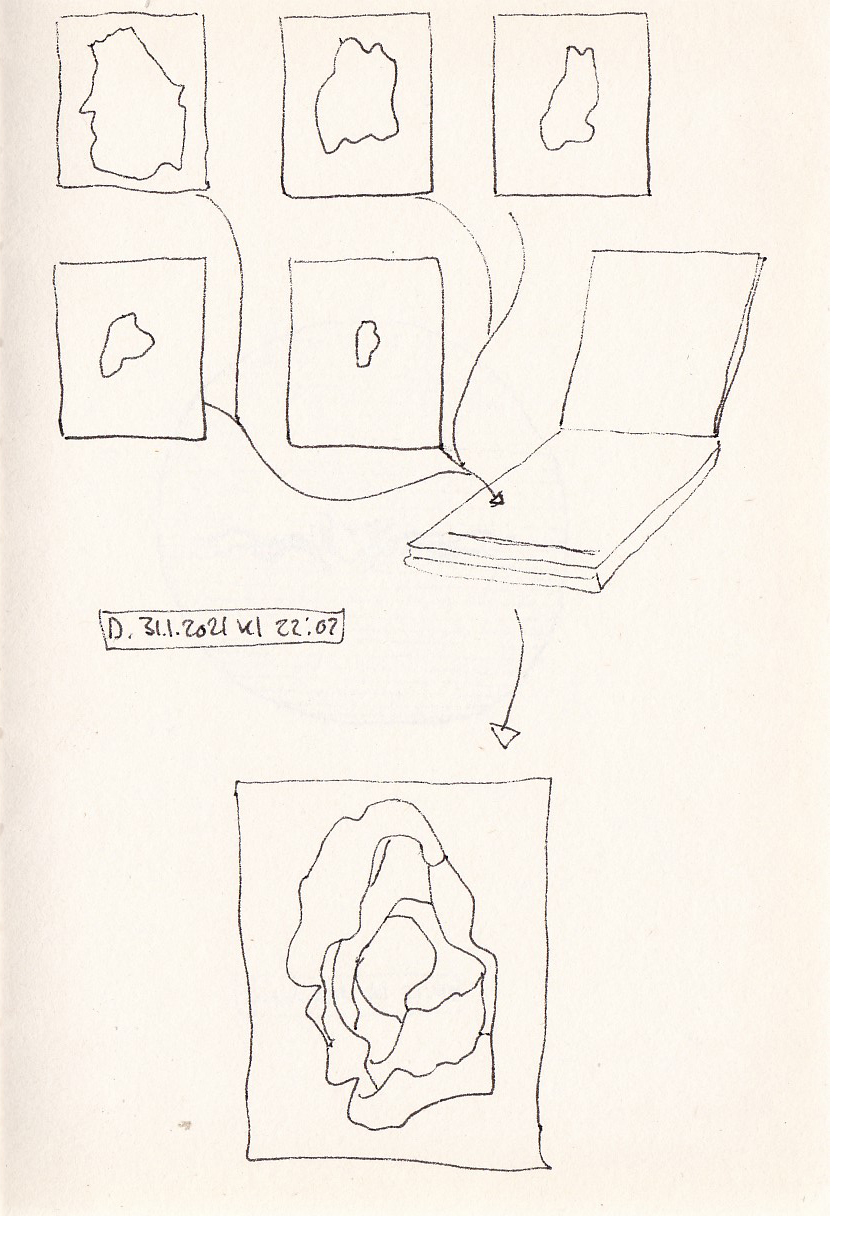 D. 31.1.2021 kl 22:02